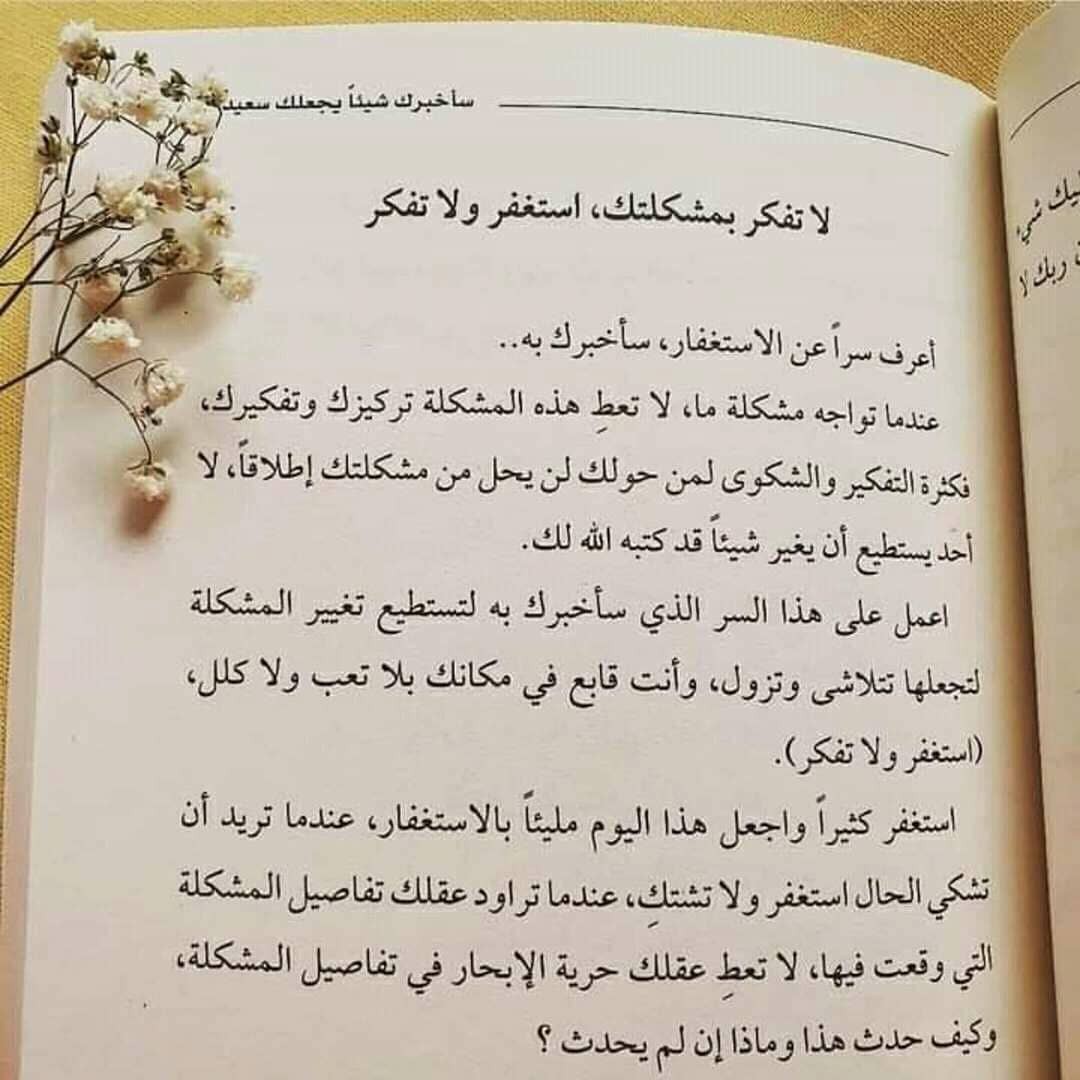 سأخبرك شيئاً يجعلك سعيد
لا تفكر بمشكلتك، استغفر ولا تفكر
أعرف سراً عن الاستغفار، سأخبرك به..
عندما تواجه مشكلة ما، لا تعطِ هذه المشكلة تركيزك وتفكيرك،
فكثرة التفكير والشكوى لمن حولك لن يحل من مشكلتك إطلاقاً، لا
أحد يستطيع أن يغير شيئاً قد كتبه الله لك.
اعمل على هذا السر الذي سأخبرك به لتستطيع تغيير المشكلة
لتجعلها تتلاشى وتزول، وأنت قابع في مكانك بلا تعب ولا كلل،
(استغفر ولا تفكر).
استغفر كثيراً واجعل هذا اليوم مليئاً بالاستغفار، عندما تريد أن
تشكي الحال استغفر ولا تشتكِ، عندما تراود عقلك تفاصيل المشكلة
التي وقعت فيها، لا تعطِ عقلك حرية الإبحار في تفاصيل المشكلة،
وكيف حدث هذا وماذا إن لم يحدث ؟
شيء
ربك لا